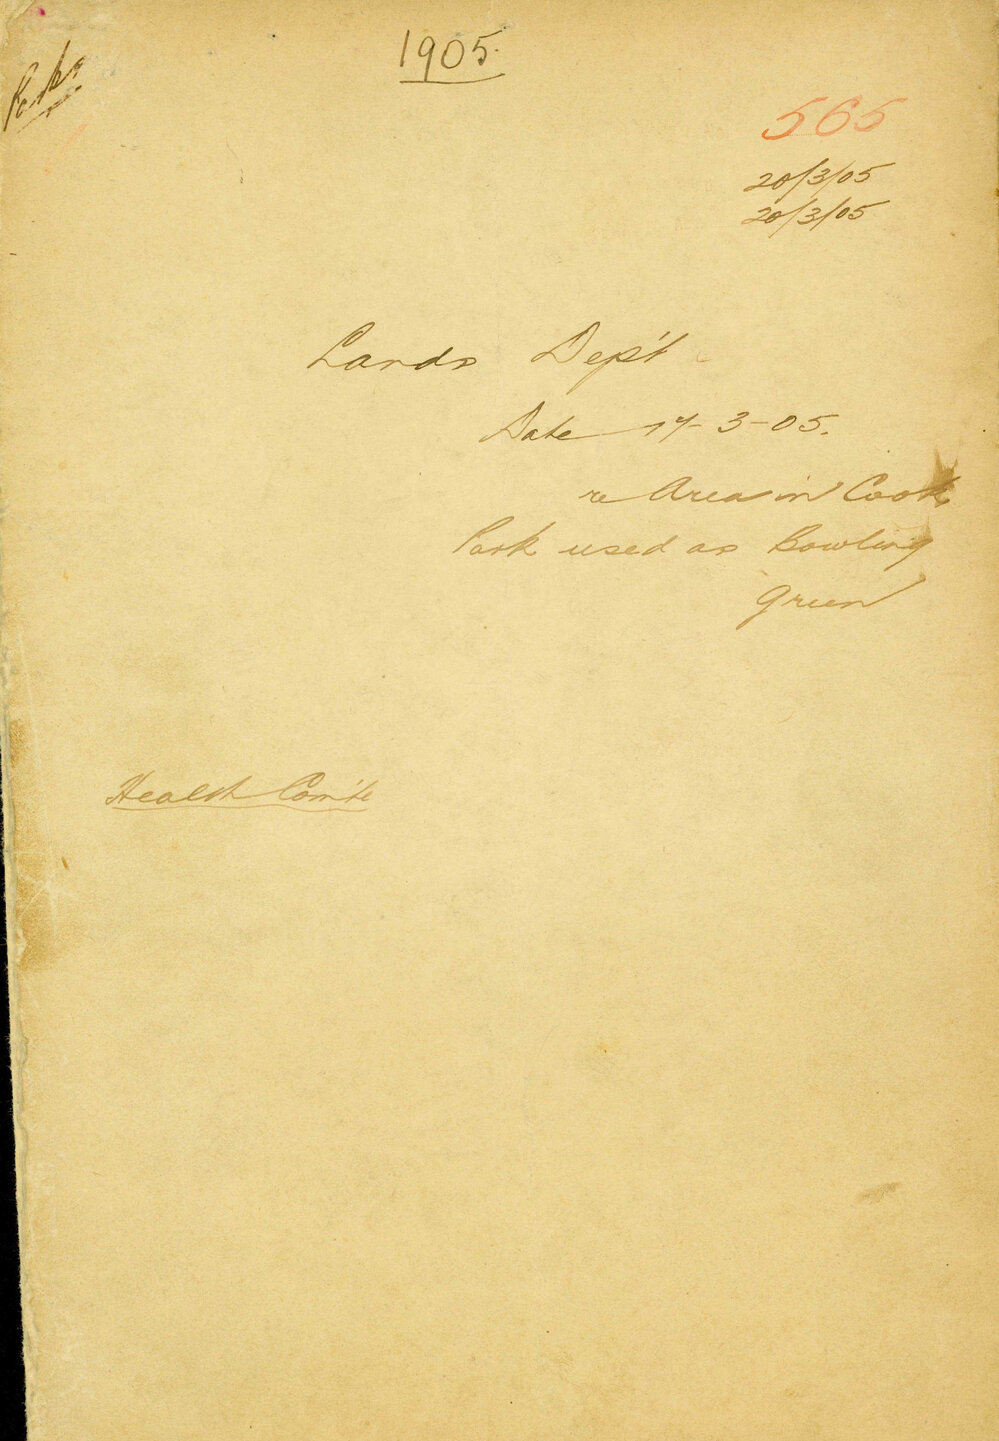 1905.
Parks
565
20/3/05
20/3/05
Lands Dep't
Date 17-3-05.
re Area in Cook
Park used as Bowling
Green
Health Com'te